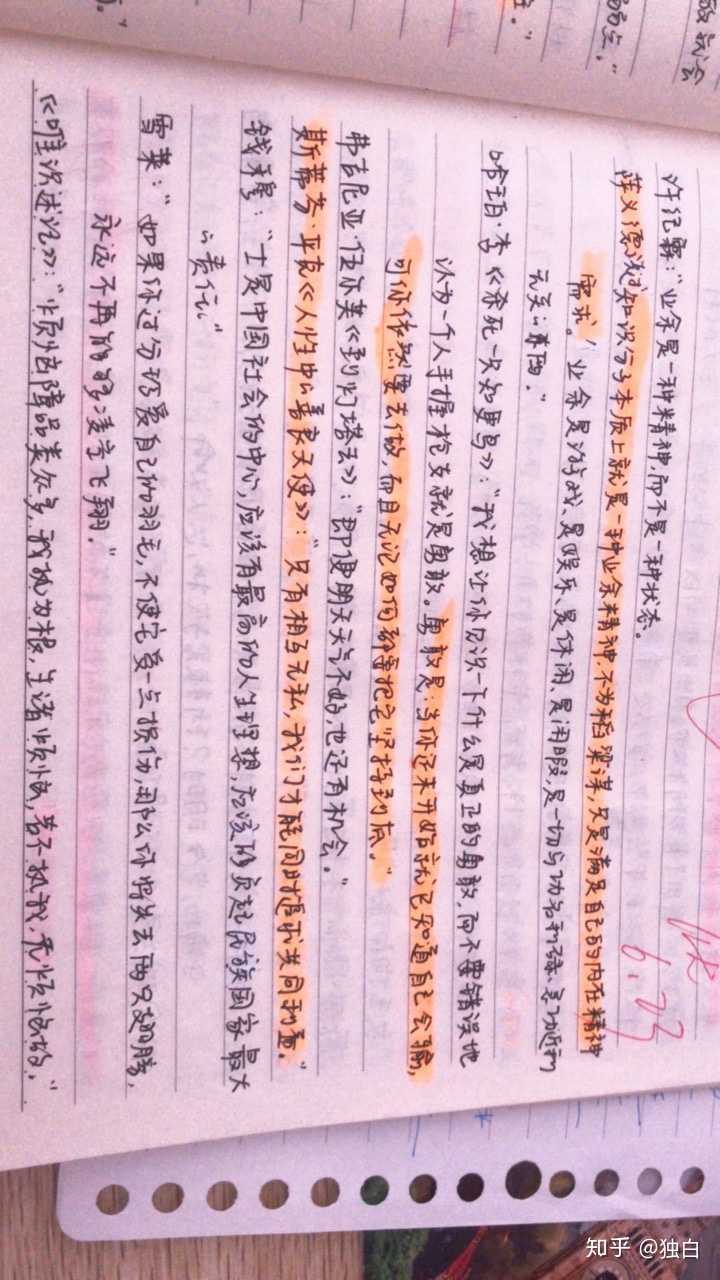 许纪霖：“业余是一种精神，而不是一种状态。
萨义德说过知识分子本质上就是一种业余精神，不为稻粱谋，只是满足自己的内在精神
需求。”业余是游戏、是娱乐、是休闲、是闲暇，是一切与功名利禄、急功近利
无关的东西。”
哈珀·李《杀死一只知更鸟》：“我想让你见识一下什么是真正的勇敢，而不要错误地
认为一个人手握枪支就是勇敢。勇敢是：当你还未开始就已知道自己会输，
可你依然要去做，而且无论如何都要把它坚持到底。”
弗吉尼亚·伍尔芙《到灯塔去》：“即使明天天气不好，也还有机会。”
斯蒂芬·平克《人性中的善良天使》：“只有相互无私，我们才能同时追求共同利益。”
钱穆：“士是中国社会的中心，应该有最高的人生理想，应该能负起民族国家最大
的责任。”
雪莱：“如果你过分珍爱自己的羽毛，不使它受一点损伤，那么你将失去两只翅膀，
永远不再能够凌空飞翔。”
《唯识述记》：“烦恼障品类众多，我执为根，生诸烦恼，若不执我，无烦恼故。”
6.23
知乎 @独白